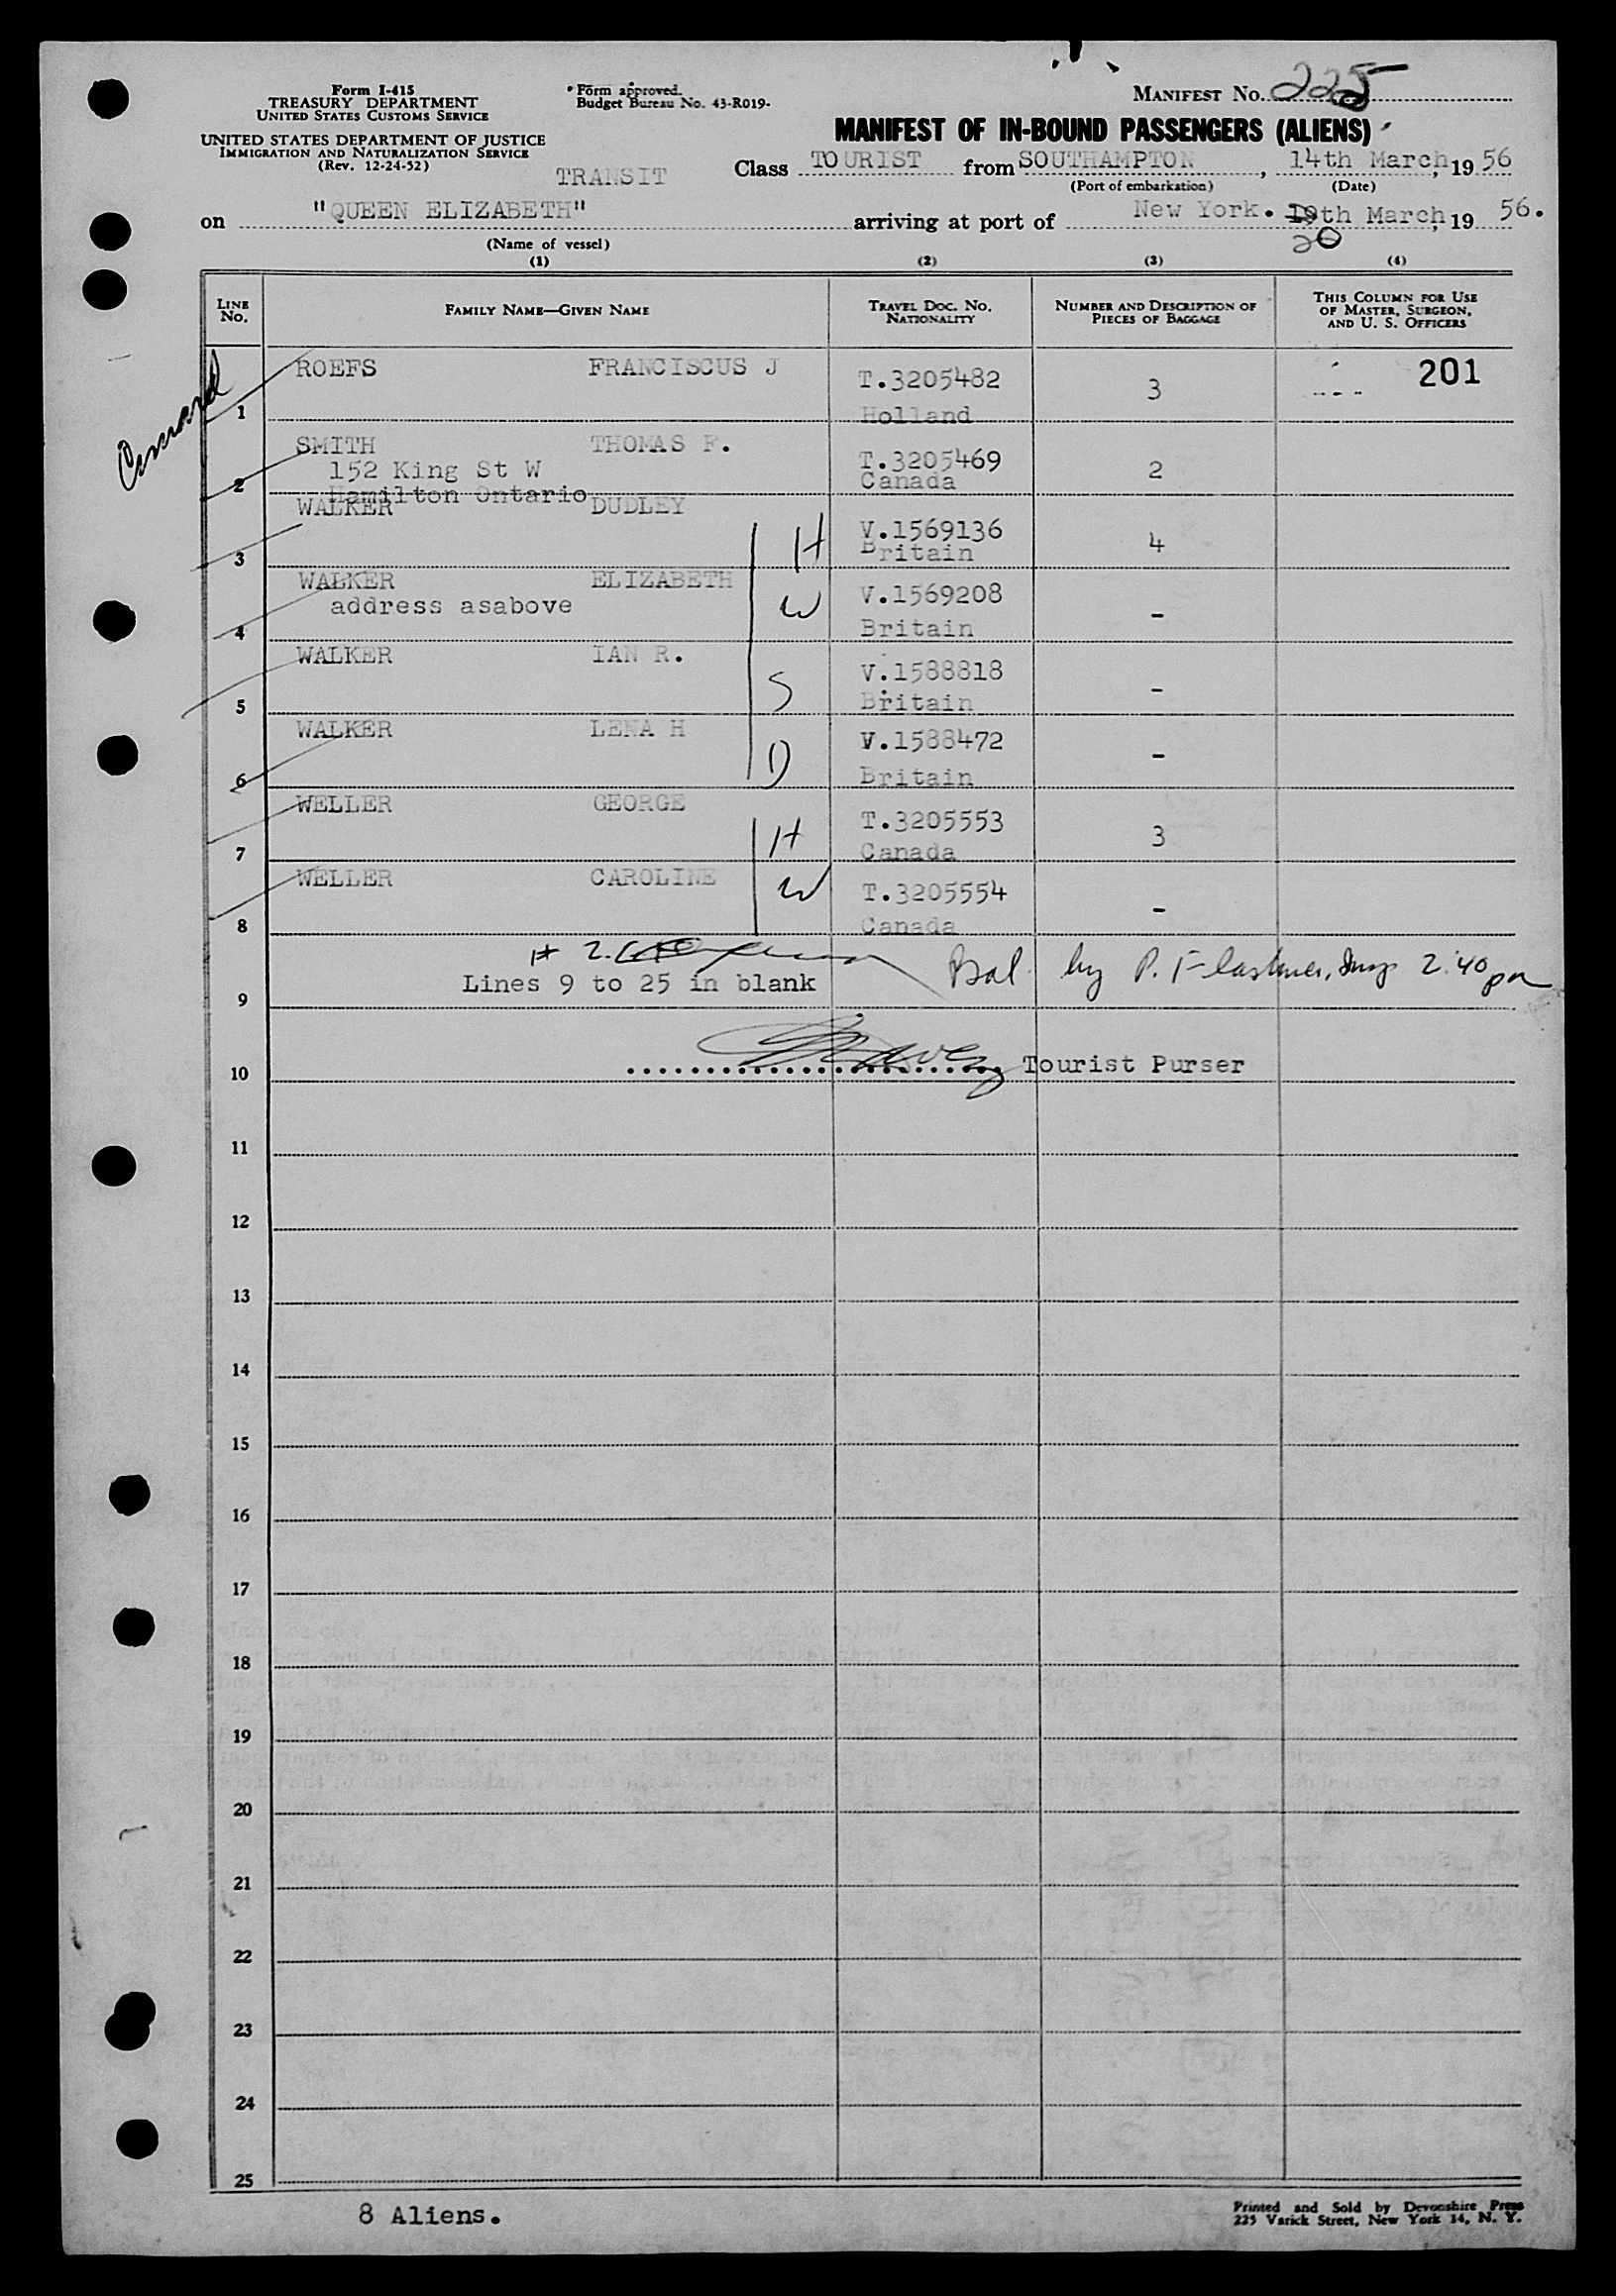 Form I-415
TREASURY DEPARTMENT
UNITED STATES CUSTOMS SERVICE
UNITED STATES DEPARTMENT OF JUSTICE
IMMIGRATION AND NATURALIZATION SERVICE
(Rev. 12-24-52)
Form approved.
Budget Bureau No. 43-R019-
MANIFEST No. 225
MANIFEST OF IN-BOUND PASSENGERS (ALIENS)
TRANSIT
Class TOURIST from SOUTHAMPTON, 14th March, 19 56
(Port of embarkation) (Date)
on "QUEEN ELIZABETH" arriving at port of New York. 19th March, 19 56.
20
(Name of vessel)
(1) (2) (3) (4)
LINE No. FAMILY NAME—GIVEN NAME TRAVEL DOC. NO. NATIONALITY NUMBER AND DESCRIPTION OF PIECES OF BAGGAGE THIS COLUMN FOR USE OF MASTER, SURGEON, AND U. S. OFFICERS
Cunard
1 ROEFS FRANCISCUS J T.3205482 3 201
Holland
2 SMITH THOMAS F. T.3205469 2
152 King St W Canada
Hamilton Ontario
3 WALKER DUDLEY H V.1569136 4
Britain
4 WALKER ELIZABETH W V.1569208 -
address asabove Britain
5 WALKER IAN R. S V.1588818 -
Britain
6 WALKER LENA H D V.1588472 -
Britain
7 WELLER GEORGE H T.3205553 3
Canada
8 WELLER CAROLINE W T.3205554 -
Canada
Bal by P. 2:40 pm
9 Lines 9 to 25 in blank
10 Tourist Purser
11
12
13
14
15
16
17
18
19
20
21
22
23
24
25
8 Aliens.
Printed and Sold by Devonshire Press
225 Varick Street, New York 14, N. Y.